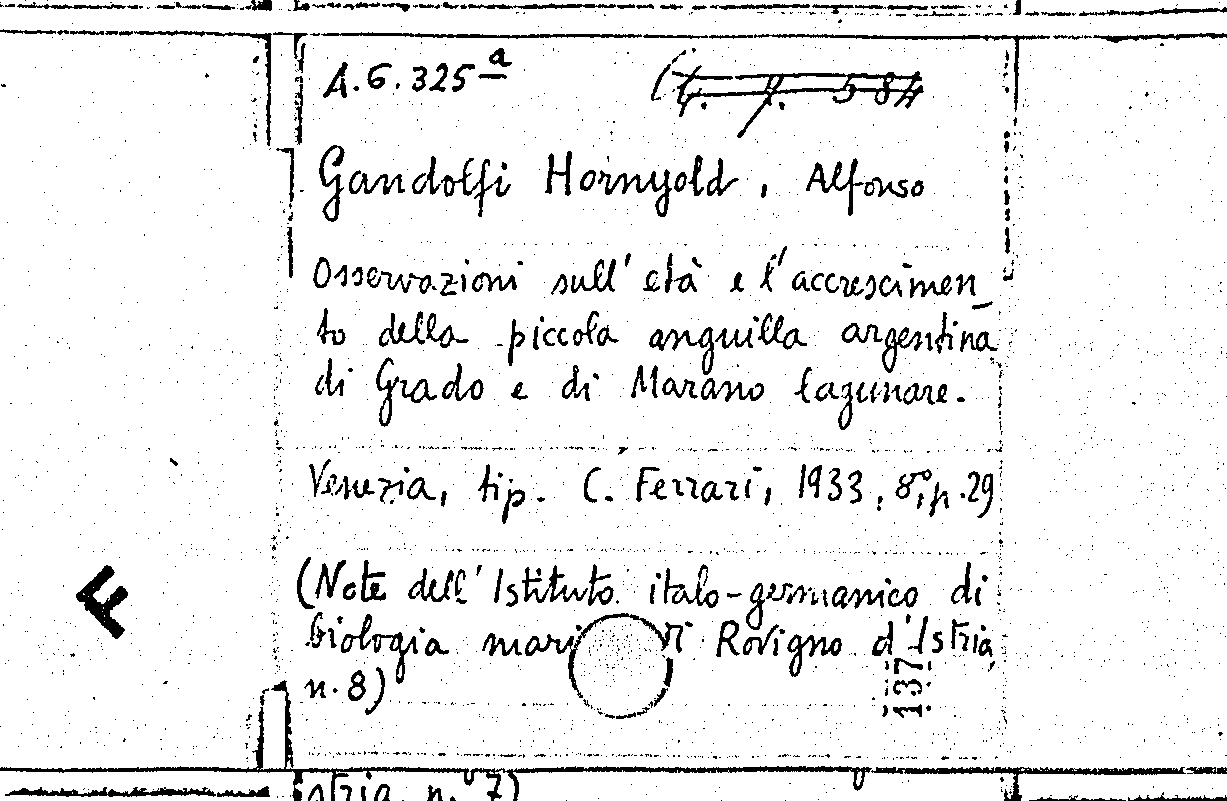 A.G.325ª
(4. 7. 584
Gandolfi Hornyold, Alfonso
Osservazioni sull'età e l'accrescimen_
to della piccola anguilla argentina
di Grado e di Marano lagunare.
Venezia, tip. C. Ferrari, 1933, 8°, p. 29
(Note dell'Istituto italo-germanico di
biologia mari di Rovigno d'Istria,
n. 8)
137
stria, n.° 7)